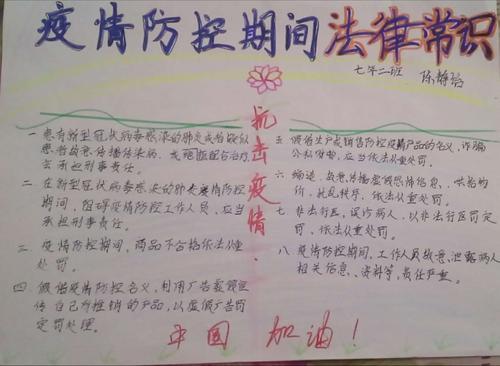 疫情防控期间法律常识
七年二班 陈静
抗击疫情.
一 患有新型冠状病毒感染的肺炎或者疑似
患者故意传播传染病,拒绝配合治疗
去承担刑事责任。
二 在新型冠状病毒感染的肺炎疫情防控
期间,阻碍疫情防控工作人员,应当
承担刑事责任。
三 疫情防控期间,商品不合格依法从重
处罚。
四 假借疫情防控名义,利用广告虚假宣
传自己所推销的产品,以虚假广告罪
定罪处理。
五 假借生产或销售防控疫情产品的名义,诈骗
公私财物,应当依法从重处罚。
六 编造、故意传播虚假疫情信息、哄抬物
价,扰乱秩序,依法从重处罚。
七 非法行医,误诊病人,以非法行医罚定
罚,依法从重处罚。
八 疫情防控期间,工作人员故意泄露病人
相关信息、资料等,责任严重。
中国 加油!